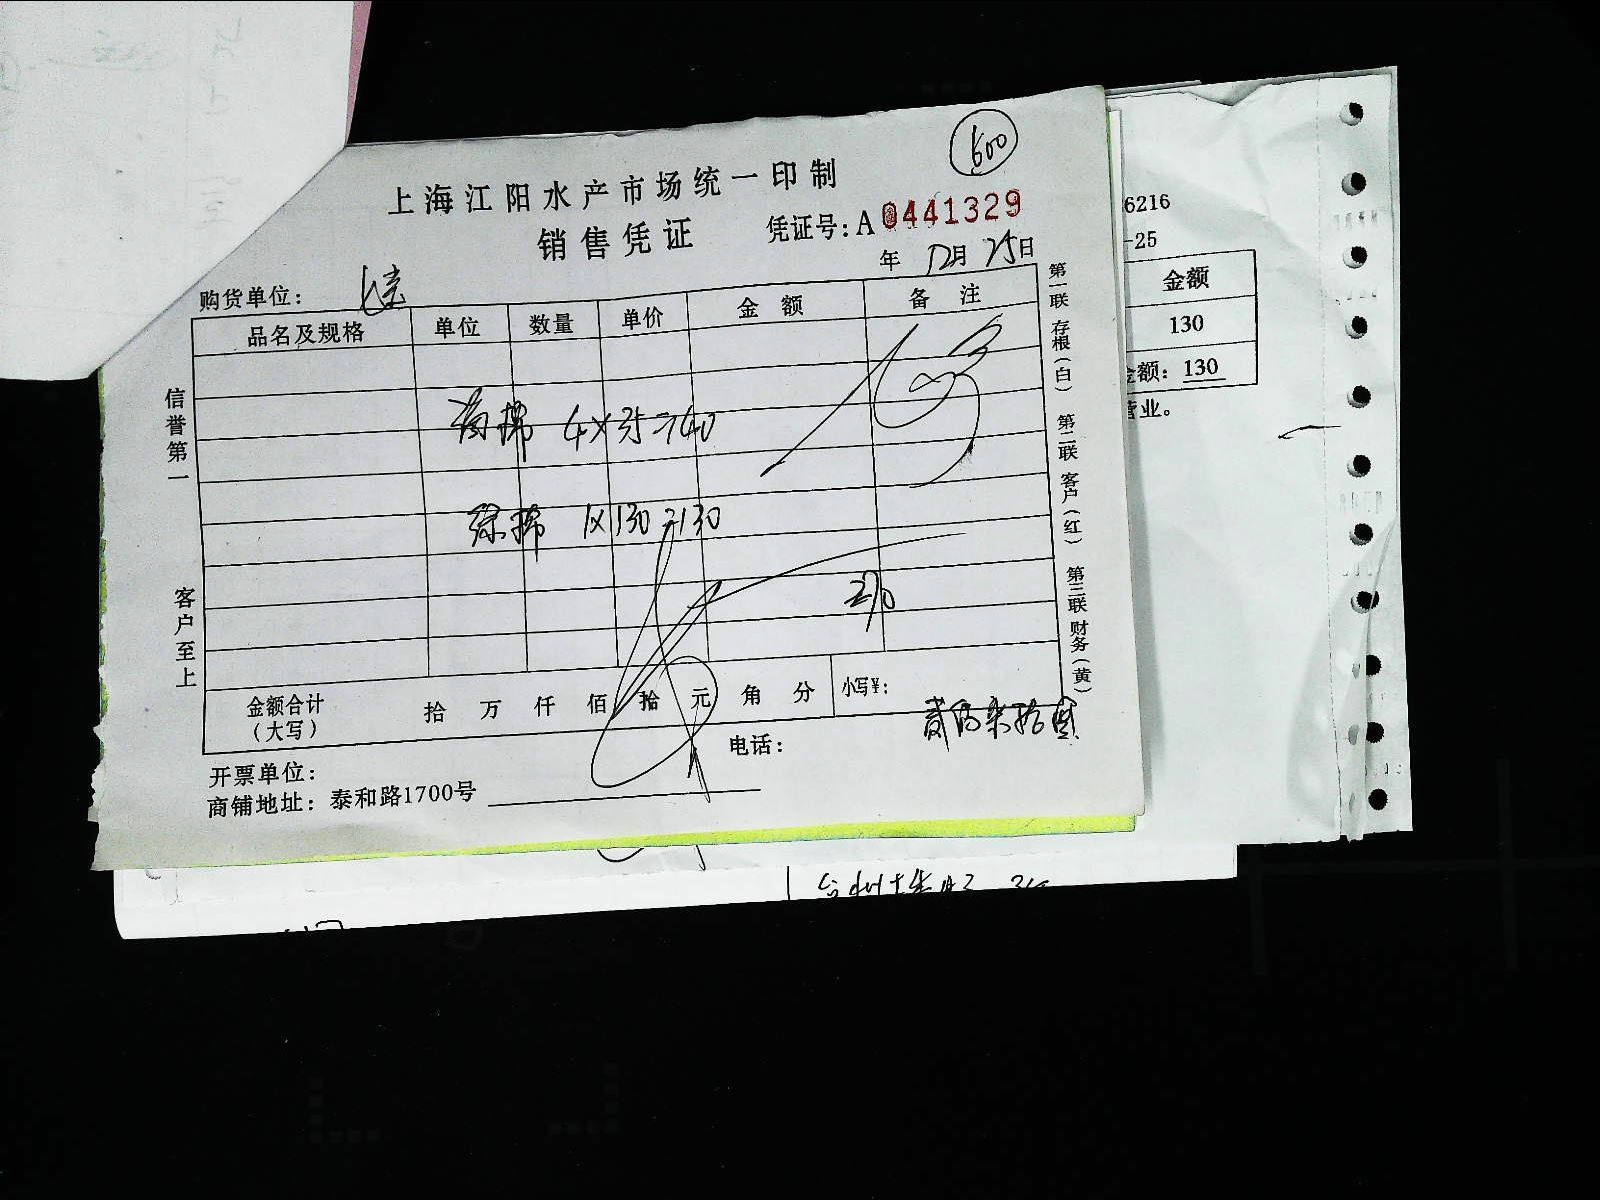 600
上海江阳水产市场统一印制
销售凭证
凭证号：A 0441329
年 12月 25日
购货单位：
品名及规格 单位 数量 单价 金额 备注
4×35=140
1×130=130
270
金额合计（大写） 拾 万 仟 佰 拾 元 角 分 小写¥：
贰佰柒拾圆
开票单位： 电话：
商铺地址：泰和路1700号
信誉第一
客户至上
第一联 存根（白） 第二联 客户（红） 第三联 财务（黄）
6216
-25
金额
130
金额：130
营业。